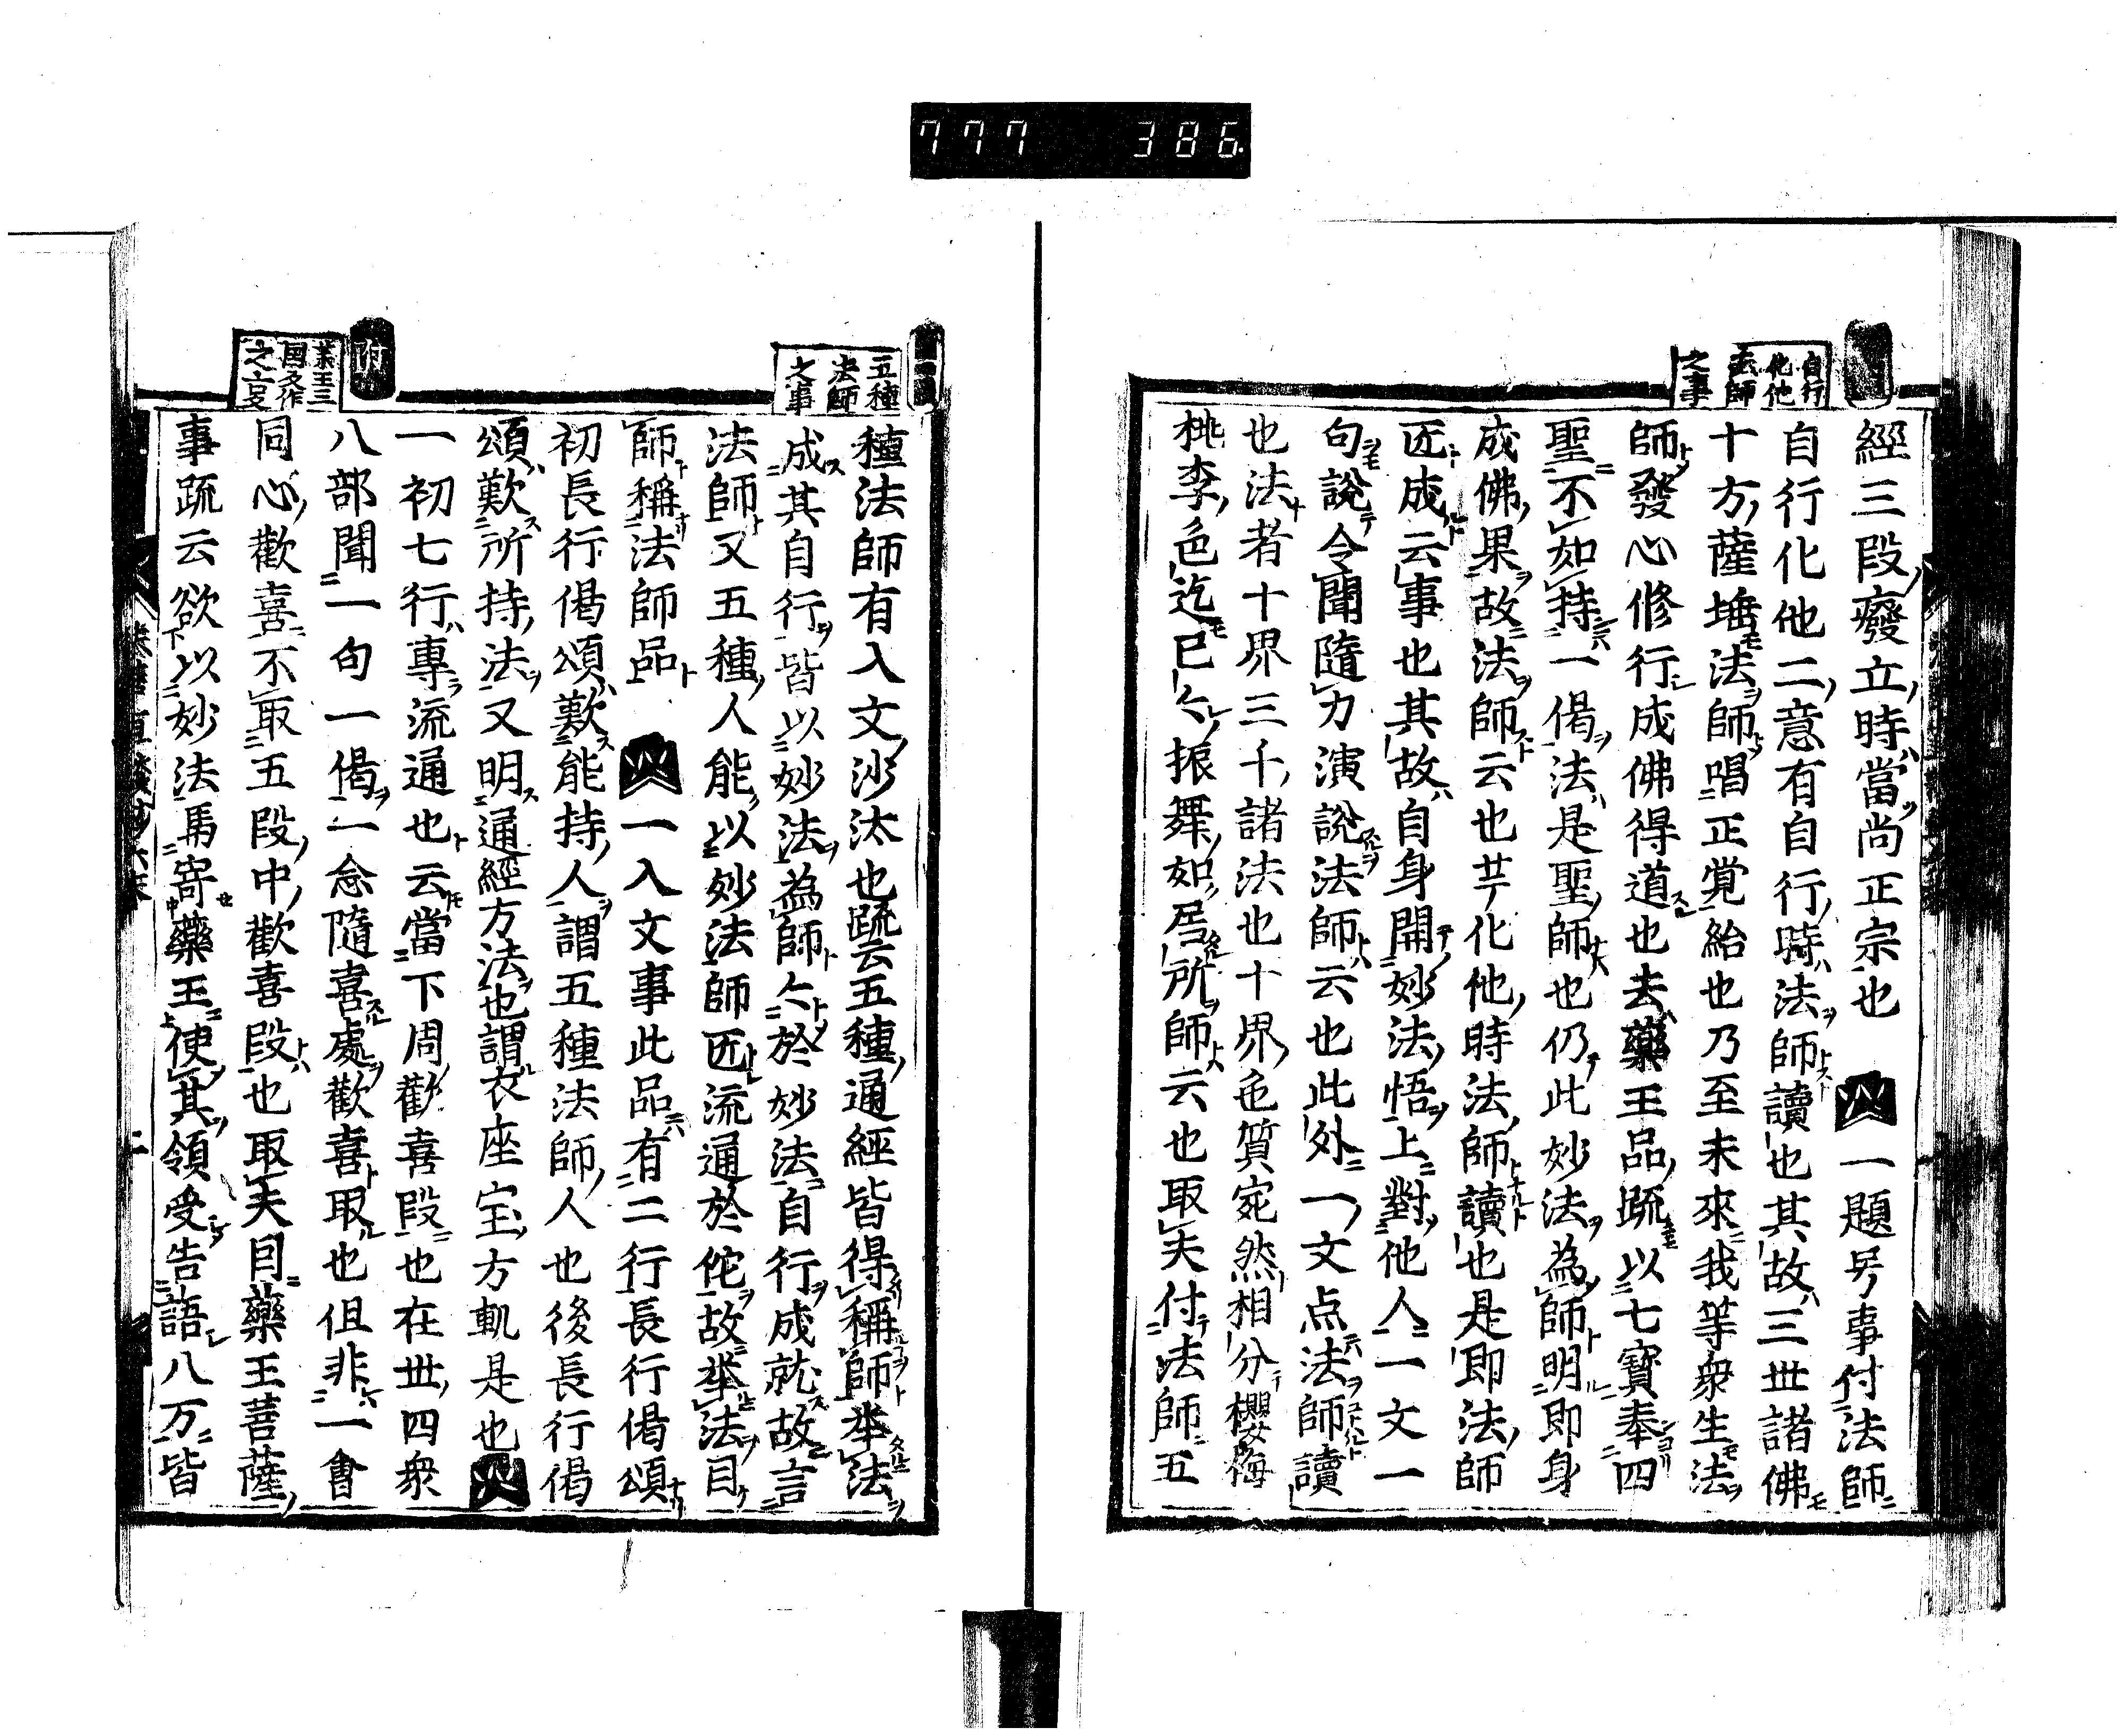 777 386
自行
化他
法師
之事
經三段癈立時當尚正宗也 一題号事付法師
自行化他二意有自行時法師讀也其故三世諸佛
十方薩埵法師唱正覚給也乃至未來我等衆生法
師發心修行成佛得道也去藥王品疏以七寶奉四
聖不如持一偈法是聖師也仍此妙法為師明即身
成佛果故法師云也廿化他時法師讀也是即法師
匠成云事也其故自身開妙法悟上對他人一文一
句說令聞隨力演說法師云也此外一文点法師讀
也法者十界三千諸法也十界色質宛然相分櫻梅
桃李色迄已々振舞如居所師云也取夫付法師五
五種
法師
之事
種法師有入文沙汰也疏云五種通經皆得稱師举法
成其自行皆以妙法為師々於妙法自行成就故言
法師又五種人能以妙法師匠流通於佗故举法目
師稱法師品 一入文事此品有二行長行偈頌
初長行偈頌歎能持人謂五種法師人也後長行偈
頌歎所持法又明通經方法也謂衣座宝方軌是也
一初七行專流通也云當下周歡喜段也在世四衆
八部聞一句一偈一念隨喜處歡喜取也但非一會
同心歡喜不取五段中歡喜段也取夫目藥王菩薩
事疏云欲以妙法馬寄藥王使其領受告語八万皆
附